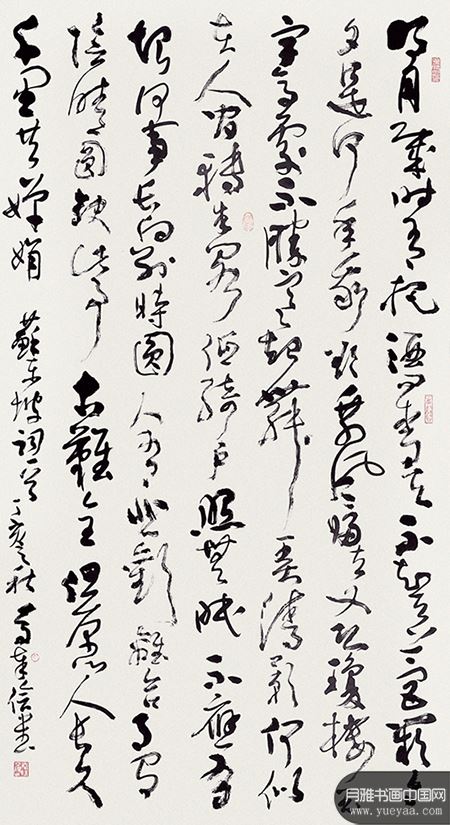 明月幾時有把酒問青天不知天上宫闕今
夕是何年我欲乘風歸去又恐瓊樓玉
宇高處不勝寒起舞弄清影何似
在人間轉朱閣低綺户照無眠不應有
恨何事長向别時圓人有悲歡離合月有
陰晴圓缺此事古難全但願人長久
千里共嬋娟 蘇東坡詞一首 丁亥之秋 書
月雅书画中国网
www.yueyaa.com